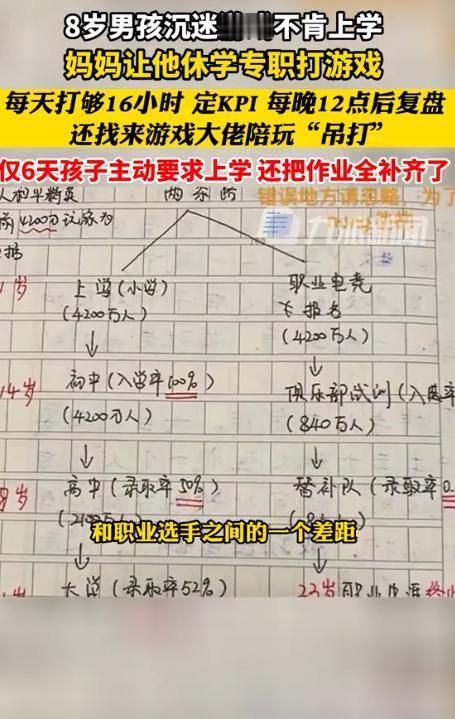 8岁男孩沉迷 不肯上学
妈妈让他休学专职打游戏
每天打够16小时 定KPI 每晚12点后复盘
还找来游戏大佬陪玩“吊打”
仅6天孩子主动要求上学 还把作业全补齐了
错误地方请忽略，为了
九派新闻
4200万
上学（小学）
（4200万人）
职业电竞
报名
（4200万人）
初中（入学率100%）
（4200万人）
俱乐部试训（入
（840万人）
高中（录取率50%）
（2100万人）
替补队（录取率0.
和职业选手之间的一个差距
大学（录取率52%）
23岁